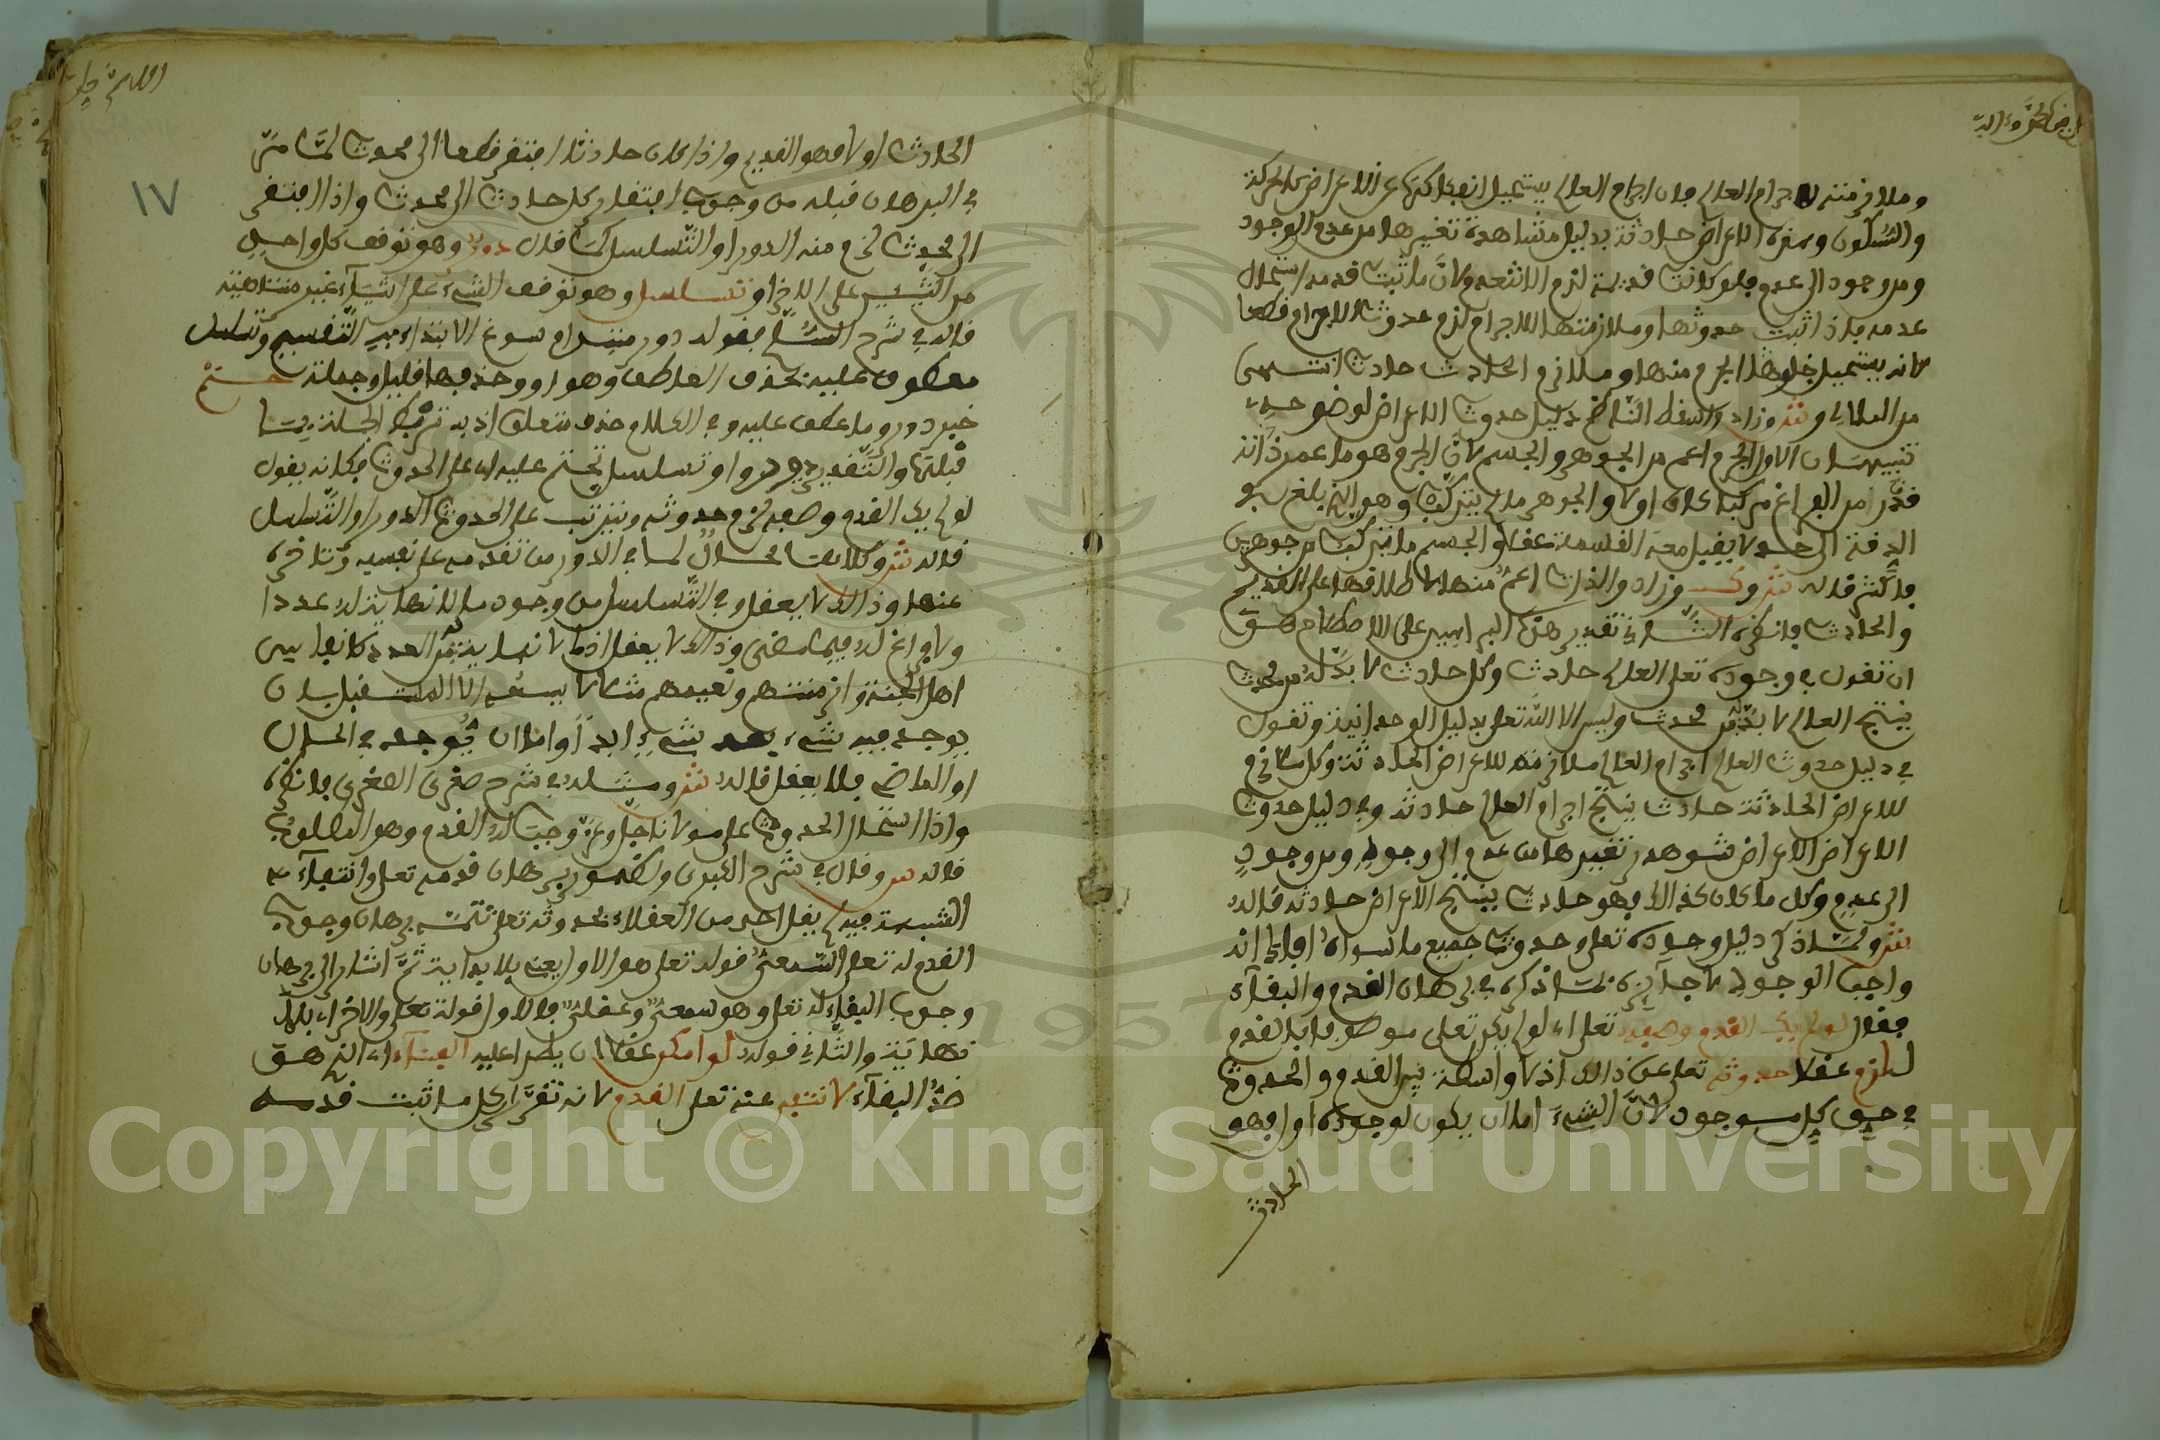 وملازمته لاجرام العالم فلان اجرام العالم يستحيل انفكاكها عن الاعراض كالحركة
والسكون وهذه الاعراض حادثة بدليل مشاهدة تغييرها من عدم الى وجود
ومن وجود الى عدم فلو كانت قديمة لزم الا تنعدم لان ما ثبت قدمه استحال
عدمه فاذا ثبت حدوثها وملازمتها للاجرام لزم حدوث الاجرام قطعا
لانه يستحيل خلو هذا الجرم منها وملازم الحادث حادث انتهى
من الطالب وزاد واسقط الشارح دليل حدوث الاعراض لوضوحه
تنبيهان الاول الجرم اعم من الجوهر والجسم لان الجرم هو ما عمر ذاته
قدرا من الفراغ مركبا كان اولا والجوهر ما لم يتركب وهو الذي بلغ في
الدقة الى حد لا يقبل معه القسمة عقلا والجسم ما تركب من جوهرين
فاكثر قاله وزاد والذات اعم منها لاطلاقها على القديم
والحادث فانظره الثاني تقدير هذه البراهين على
ان تقول في وجوده تعلى العالم حادث وكل حادث لا بد له من محدث
ينتج العالم لا بد له من محدث وليس الا الله تعلى بدليل الوحدانية وتقول
في دليل حدوث العالم اجرام العالم ملازمة للاعراض الحادثة وكل ملازم
للاعراض الحادثة حادث ينتج اجرام العالم حادثة وفي دليل حدوث
الاعراض الاعراض شوهد تغييرها من عدم الى وجود ومن وجود
الى عدم وكل ما كان كذالك فهو حادث ينتج الاعراض حادثة قاله
ولما ذكر دليل وجوده تعلى وحدوث جميع ما سواه افاد انه
واجب الوجود لا جائزه بما ذكره في برهان القدم والبقاء
فقال لو لم يك القدم وصفه تعلى اي لو لم يكن تعلى موصوفا بالقدم
لزم عقلا حدوثه تعلى عن ذالك اذ لا واسطة بين القدم والحدوث
في حق كل موجود لان الشيء اما ان يكون لوجوده اول فهو
الحادث
١٧
الحادث اولا فهو القديم واذا كان حادثا افتقر قطعا الى محدث لما مر
في البرهان قبله من وجوب افتقار كل حادث الى محدث واذا افتقر
الى محدث لزم منه الدور او التسلسل كما قال دور وهو توقف كل واحد
من الشيئين على الاخر او تسلسل وهو توقف الشيء على اشياء غير متناهية
قاله في شرح السلم فقوله دور مبتدا وسوغ الابتداء به التقسيم وتسلسل
معطوف عليه بحذف العاطف وهو او وحذفها قليل وجملة حتم
خبر دور وما عطف عليه وفي الكلام حذف متعلق اذ به ترتبط الجملة بما
قبلها والتقدير دور او تسلسل تحتم عليه اي على الحدوث فكانه يقول
لو لم يك القدم وصفه لزم حدوثه ويترتب على الحدوث الدور او التسلسل
قاله وكلاهما محال لما في الدور من تقدمه على نفسه وتاخره
عنها وذالك لا يعقل وفي التسلسل من وجود ما لا نهاية له عددا
ولا فراغ له فيما مضى وذالك لا يعقل
اهل الجنة وازمنتهم ونعيمهم مثلا لا الا المستقبل بان
يوجد فيه شيء بعد شيء ابدا واما ان يوجد في الحال
او الماضي فلا يعقل قاله ومثله في شرح صغرى الصغرى فانظره
واذا استحال الحدوث على مولانا جل وعز وجب له القدم وهو المطلوب
قاله وقال في شرح الكبرى ولظهور برهان قدمه تعلى وانتفاء
الشبهة فيه لم يقل احد من العقلاء بحدوثه تعلى تتمة برهان وجوب
القدم له تعلى السمعي قوله تعلى هو الاول يعني بلا بداية ثم اشار الى برهان
وجوب البقاء له تعلى وهو سمعي وعقلي فالاول قوله تعلى والاخر اي بلا
نهاية والثاني قوله لو امكن عقلا ان يطرا عليه الفناء اي الذي هو
ضد البقاء لانتفى عنه تعلى القدم لانه تقرر ان كل ما ثبت قدمه